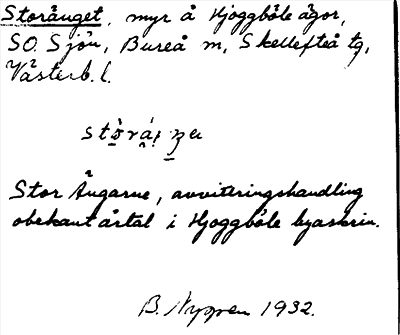 Storänget, myr å Hjoggböle ägor,
SO. Sjön, Bureå m, Skellefteå tg,
Västerb. l.
Stor Ängarne, avvittringshandling
obekant årtal i Hjoggböle byaskrin.
B. Nyggren 1932.